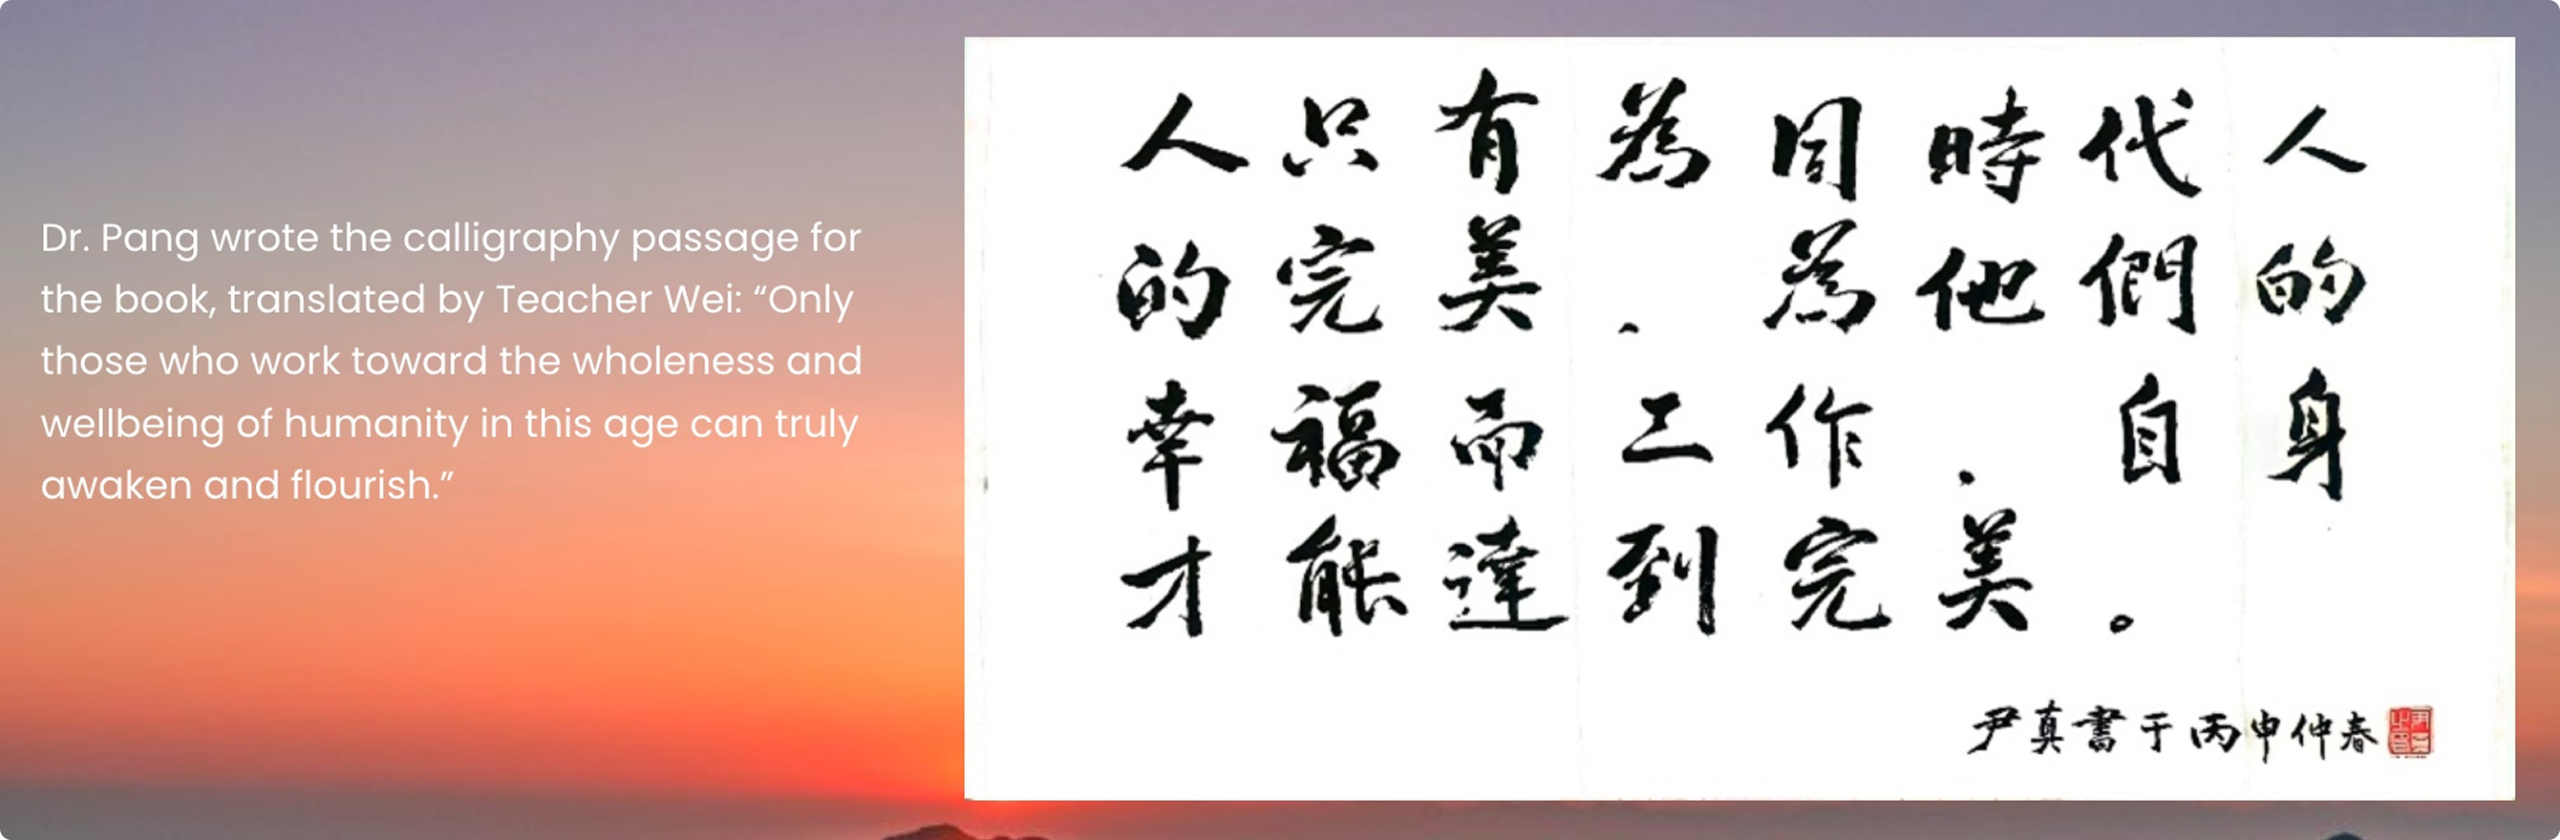 Dr. Pang wrote the calligraphy passage for
the book, translated by Teacher Wei: “Only
those who work toward the wholeness and
wellbeing of humanity in this age can truly
awaken and flourish.”
人只有為同時代人
的完美、為他們的
幸福而工作、自身
才能達到完美。
尹真書于丙申仲春